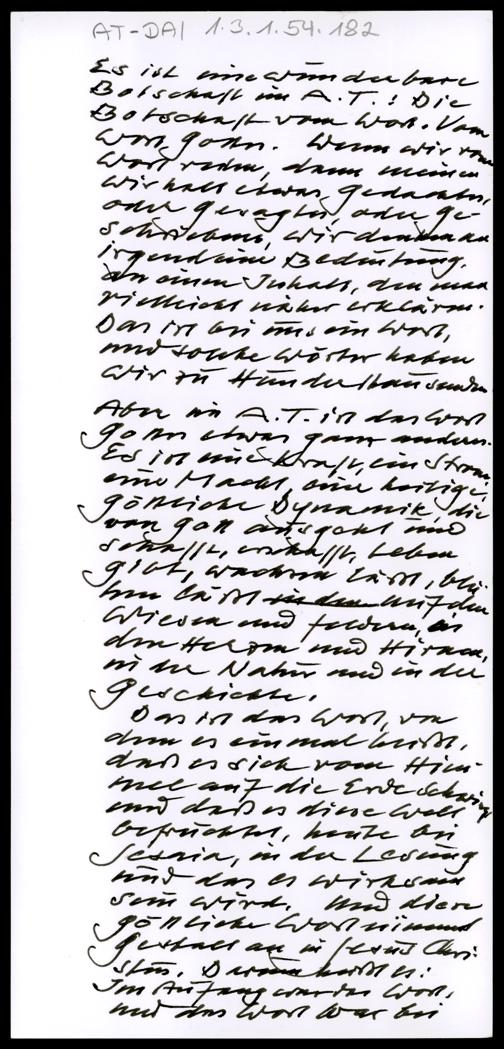 AT-DAI 1.3.1.54.182
Es ist eine wunderbare
Botschaft im A.T.: Die
Botschaft vom Wort. Vom
Wort Gottes. Wenn wir vom
Wort reden, dann meinen
wir halt etwas Gedachtes,
oder Gesagtes, oder Ge-
schriebenes, wir denken an
irgendeine Bedeutung,
an einen Inhalt, den man
vielleicht näher erklären.
Das ist bei uns ein Wort,
und solche Wörter haben
wir zu Hunderttausenden
Aber im A.T. ist das Wort
Gottes etwas ganz anderes.
Es ist eine Kraft, ein Strom,
eine Macht, eine heilige,
göttliche Dynamik, die
von Gott ausgeht und
schafft, erschafft, Leben
gibt, wachsen läßt, blü-
hen läßt in den auf den
Wiesen und Feldern, in
den Herzen und Hirnen,
in der Natur und in der
Geschichte.
Das ist das Wort, von
dem es einmal heißt,
daß es sich vom Him-
mel auf die Erde schwingt
und daß es diese Welt
befruchtet, heute bei
Jesaia, in der Lesung
und das es wirksam
sein wird. Und dieses
göttliche Wort nimmt
Gestalt an in Jesus Chri-
stus. Darum heißt es:
Im Anfang war das Wort,
und das Wort war bei